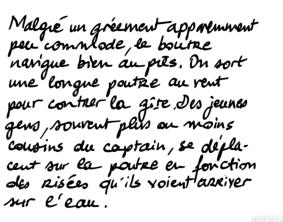 Malgré un gréement apparemment
peu commode, le boutre
navigue bien au près. On sort
une longue poutre au vent
pour contrer la gîte. Des jeunes
gens, souvent plus ou moins
cousins du captain, se dépla-
cent sur la poutre en fonction
des risées qu'ils voient arriver
sur l'eau.